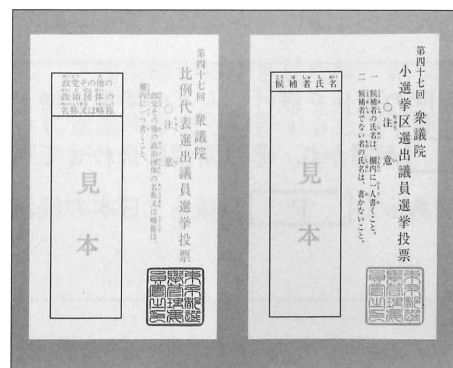 第四十七回 衆議院
小選挙区選出議員選挙投票
○注意
一 候補者の氏名は、欄内に一人書くこと。
二 候補者でない者の氏名は、書かないこと。
候補者氏名
見本
東京都選
擧管理委
員會之印
第四十七回 衆議院
比例代表選出議員選挙投票
○注意
政党その他の政治団体の名称又は略称は、
欄内に一つ書くこと。
政党その他の
政治団体の
名称又は略称
見本
東京都選
擧管理委
員會之印